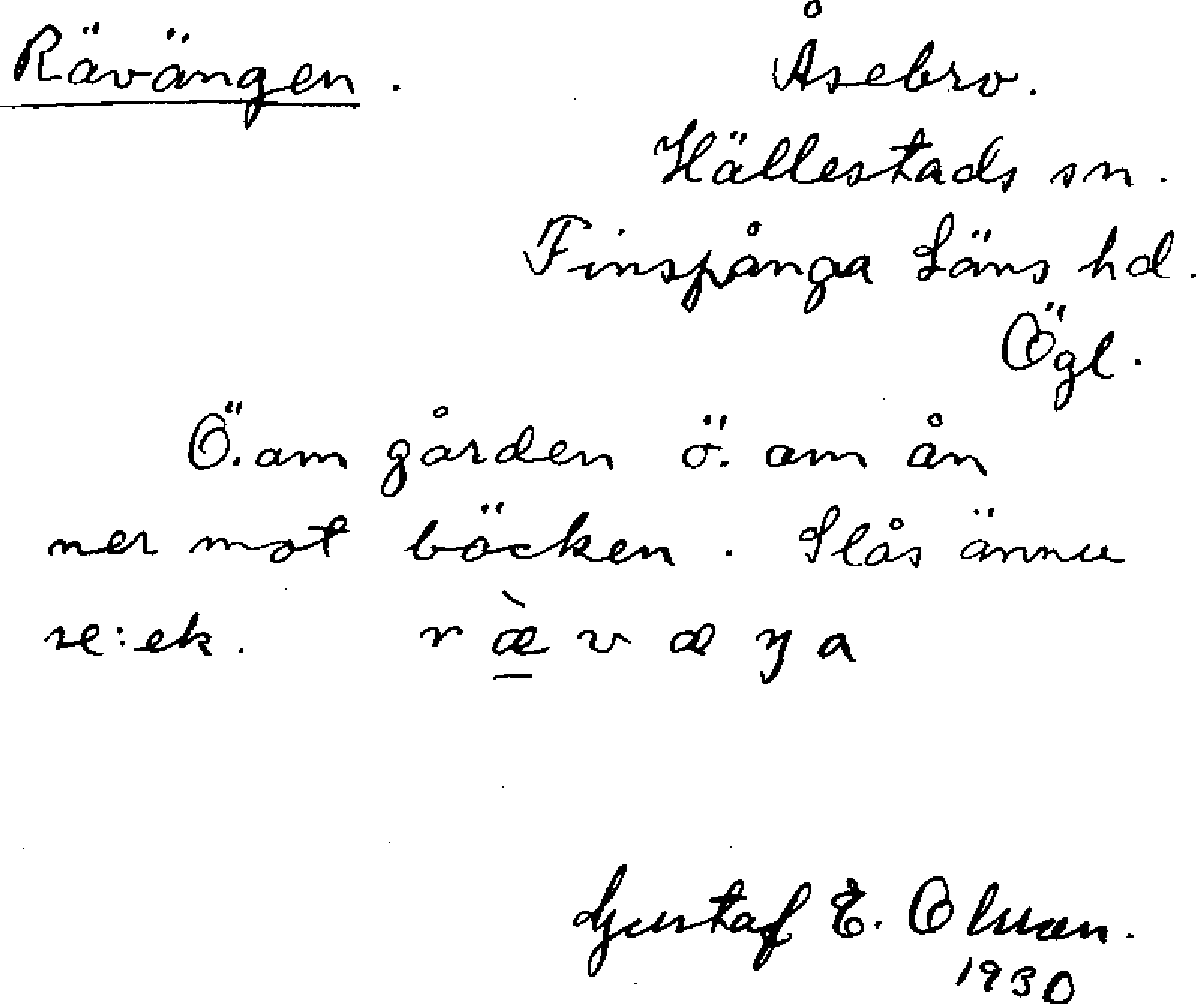 Rävängen. Åsebro.
Hällestads sn.
Finspånga Läns hd.
Ögl.
Ö. om gården ö. om ån
ner mot bäcken. Slås ännu
se: ek. r æ̀ v æ ŋ a
Gustaf E. Olsson.
1930